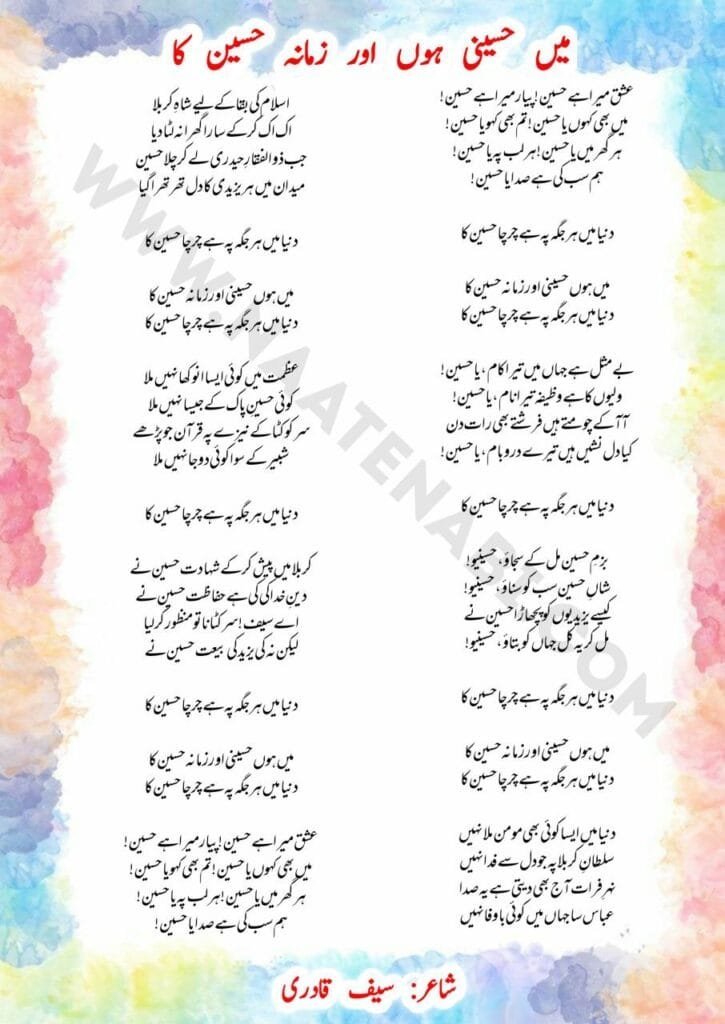 میں حسینی ہوں اور زمانہ حسین کا
عشق میرا ہے حسین! پیار میرا ہے حسین!
میں بھی کہوں یا حسین! تم بھی کہو یا حسین!
ہر گھر میں یا حسین! ہر لب پہ یا حسین!
ہم سب کی ہے صدا یا حسین!
دنیا میں ہر جگہ پہ ہے چرچا حسین کا
میں ہوں حسینی اور زمانہ حسین کا
دنیا میں ہر جگہ پہ ہے چرچا حسین کا
بے مثل ہے جہاں میں تیرا کام، یا حسین!
ولیوں کا ہے وظیفہ تیرا نام، یا حسین!
آ آ کے چومتے ہیں فرشتے بھی رات دن
کیا دل نشیں ہیں تیرے در و بام، یا حسین!
دنیا میں ہر جگہ پہ ہے چرچا حسین کا
بزمِ حسین مل کے سجاؤ، حسینیو!
شانِ حسین سب کو سناؤ، حسینیو!
کیسے یزیدیوں کو پچھاڑا حسین نے
مل کر یہ کل جہاں کو بتاؤ، حسینیو!
دنیا میں ہر جگہ پہ ہے چرچا حسین کا
میں ہوں حسینی اور زمانہ حسین کا
دنیا میں ہر جگہ پہ ہے چرچا حسین کا
دنیا میں ایسا کوئی بھی مومن ملا نہیں
سلطانِ کربلا پہ جو دل سے فدا نہیں
نہرِ فرات آج بھی دیتی ہے یہ صدا
عباس سا جہاں میں کوئی باوفا نہیں
اسلام کی بقا کے لیے شاہِ کربلا
اک اک کر کے سارا گھرانہ لٹا دیا
جب ذوالفقارِ حیدری لے کر چلا حسین
میدان میں ہر یزیدی کا دل تھر تھرا گیا
دنیا میں ہر جگہ پہ ہے چرچا حسین کا
میں ہوں حسینی اور زمانہ حسین کا
دنیا میں ہر جگہ پہ ہے چرچا حسین کا
عظمت میں کوئی ایسا انوکھا نہیں ملا
کوئی حسینِ پاک کے جیسا نہیں ملا
سر کو کٹا کے نیزے پہ قرآن جو پڑھے
شبیر کے سوا کوئی دوجا نہیں ملا
دنیا میں ہر جگہ پہ ہے چرچا حسین کا
کربلا میں پیش کر کے شہادت حسین نے
دینِ خدا کی کی ہے حفاظت حسین نے
اے سیف! سر کٹانا تو منظور کر لیا
لیکن نہ کی یزید کی بیعت حسین نے
دنیا میں ہر جگہ پہ ہے چرچا حسین کا
میں ہوں حسینی اور زمانہ حسین کا
دنیا میں ہر جگہ پہ ہے چرچا حسین کا
عشق میرا ہے حسین! پیار میرا ہے حسین!
میں بھی کہوں یا حسین! تم بھی کہو یا حسین!
ہر گھر میں یا حسین! ہر لب پہ یا حسین!
ہم سب کی ہے صدا یا حسین!
شاعر: سیف قادری
WWW.NAATENABI.COM